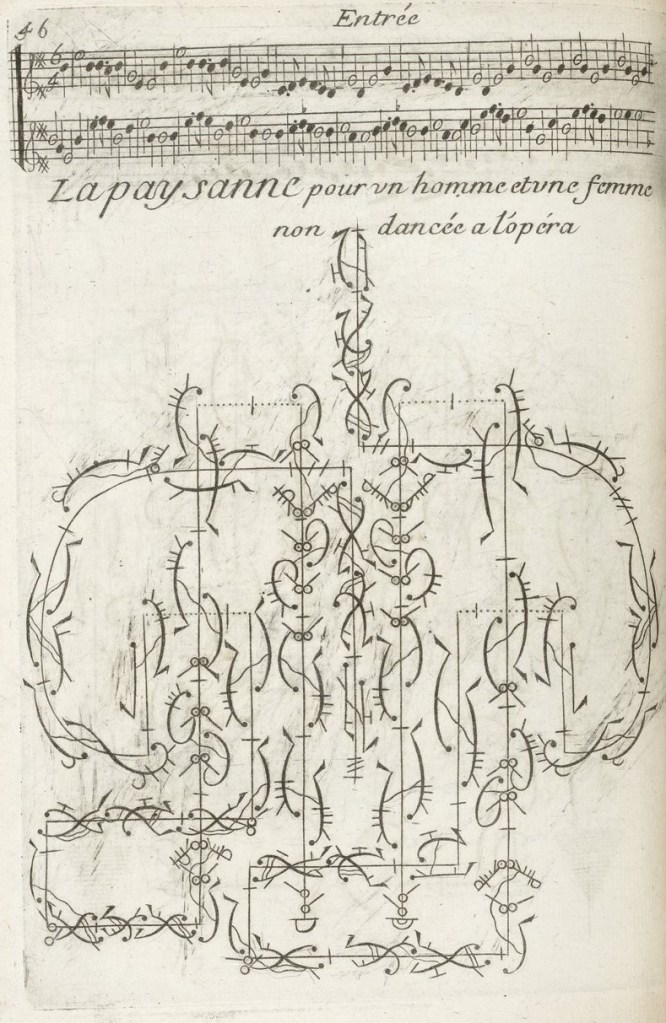 46
Entrée
6
4
La paysanne pour vn homme et vne femme
non dancée a l'opéra